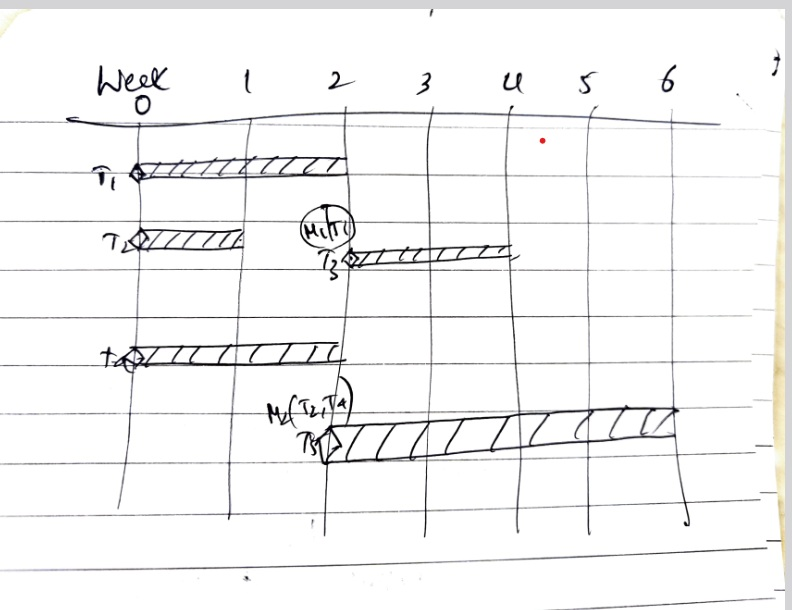 Week 1 2 3 4 5 6
0
T1
T2
M1(T1)
T3
T4
M2(T2,T4)
T5